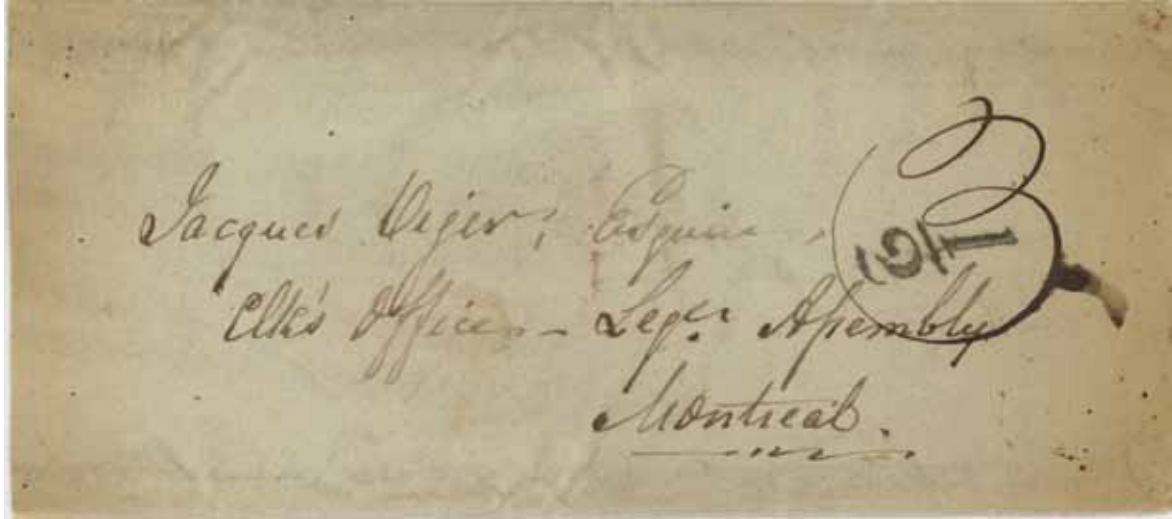 Jacques Viger, Esquire,
Clk's Office – Leg. Assembly
Montreal.